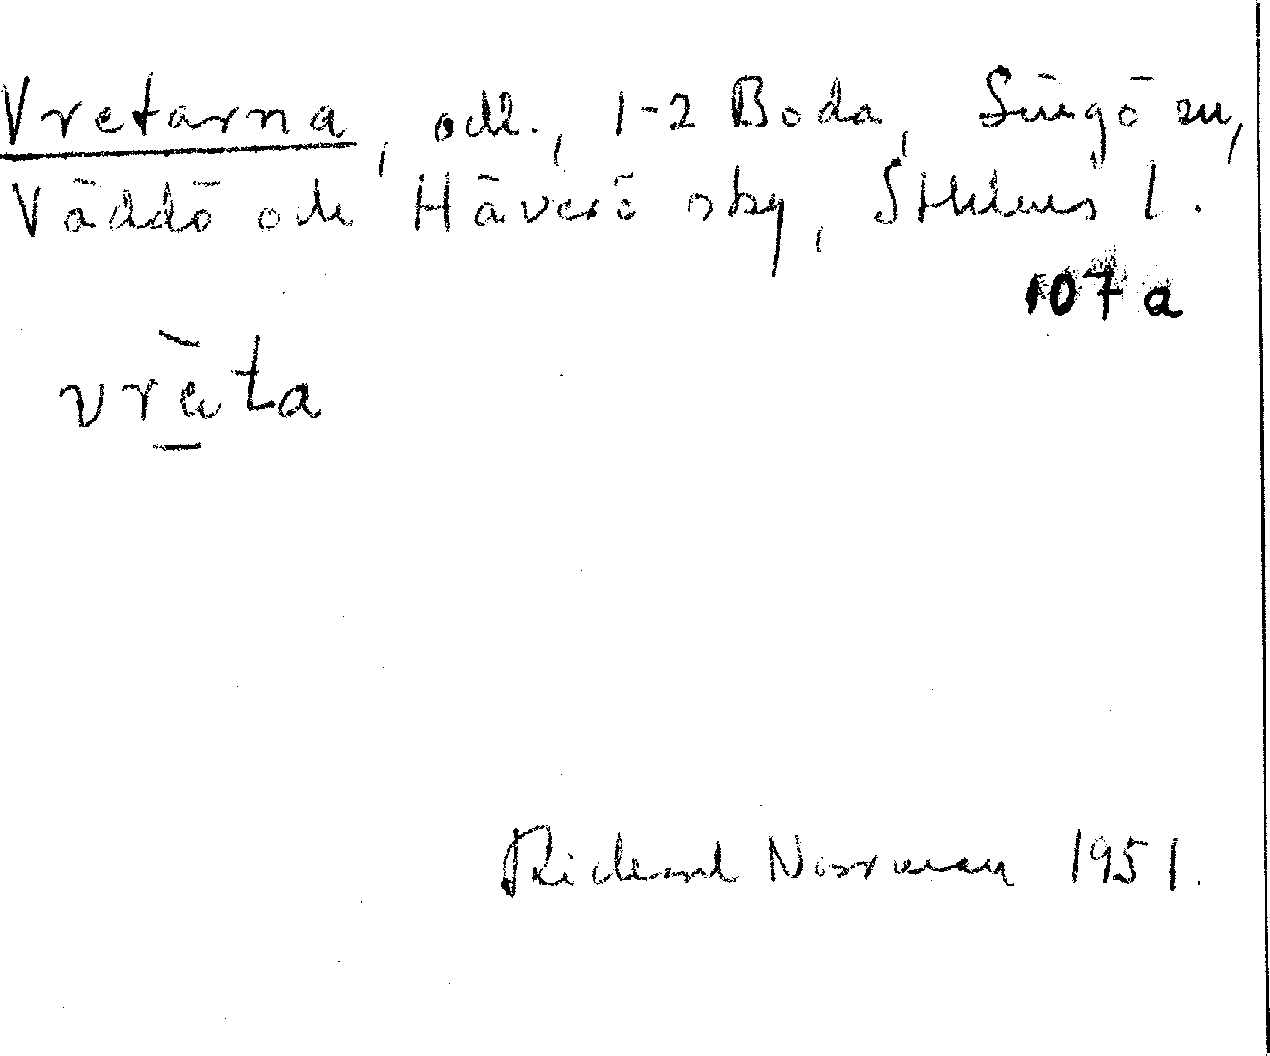 Vretarna, odl., 1-2 Boda, Singö sn,
Väddö och Häverö skg, Sthlms l.
107 a
vrèta
Rickard Norrman 1951.